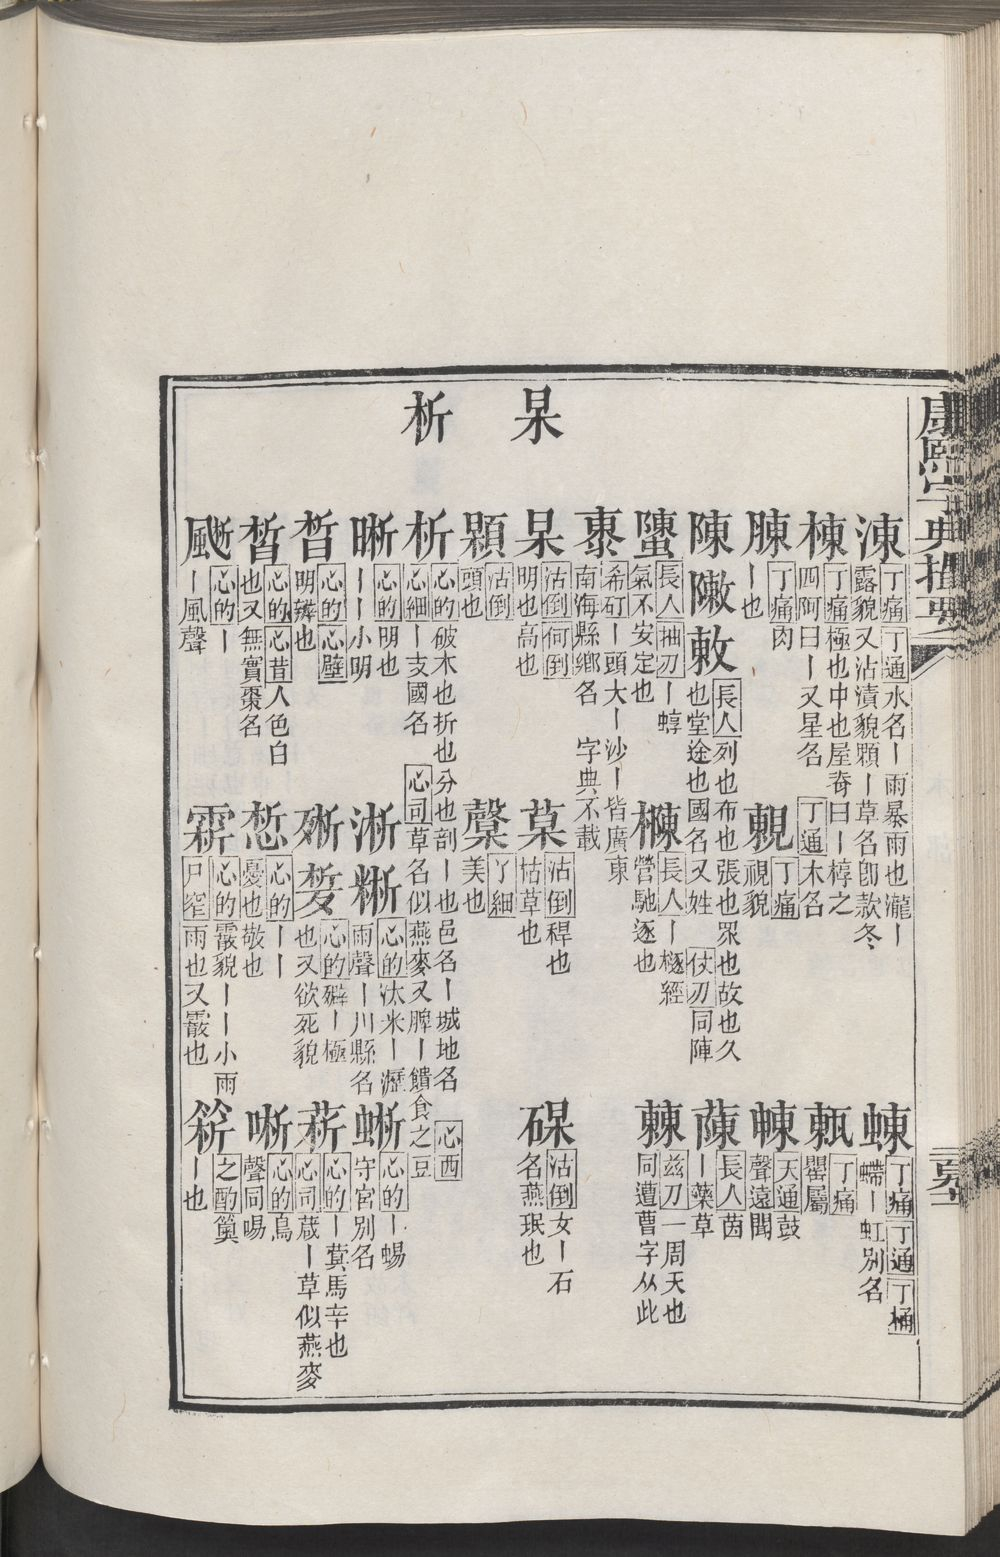 康熙字典撮要
杲
析
涷 丁痛 丁通 水名丨雨暴雨也瀧丨露貌又沾漬貌顆丨草名卽款冬
蝀 丁痛 丁通 丁桶 螮丨虹別名
棟 丁痛 極也中也屋脊曰丨椁之四阿曰丨又星名 丁通 木名
甋 丁痛 罌屬
腖 丁痛 肉丨也
覩 丁痛 視貌
㖦 天通 鼓聲遠聞
陳 敶 敕 長人 列也布也張也眾也故也久也堂途也國名又姓 仗刃 同陣
蔯 長人 茵丨藥草
螴 長人 抽刃 丨蜳氣不安定也
樄 長人 丨極經營馳逐也
𣍘 兹刀 一周天也同遭曹字从此
㯱 希矴 丨頭大丨沙丨皆廣東南海縣鄉名 字典不載
杲 沽倒 何倒 明也高也
菒 沽倒 稈也怙草也
碍 沽倒 女丨石名燕珉也
顆 沽倒 頭也
䅲 丫細 美也
析 心的 破木也折也分也剖丨也邑名丨城地名 心西 心細 丨支國名 心司 草名似燕麥又脾丨饋食之豆
晰 心的 明也丨丨小明
淅 㯕 心的 汰米丨瀝雨聲丨川縣名
蜥 心的 丨蜴守宮別名
晳 心的 心壁 明辨也
㱤 㛫 心的 㱤丨極也又欲死貌
菥 心的 丨蓂馬辛也 心司 葴丨草似燕麥
皙 心的 心昔 人色白也又無實棗名
惁 心的 丨丨憂也敬也
唽 心的 鳥聲同啺
䬊 心的 丨丨風聲
霹 心的 霰貌丨丨小雨 尸窄 雨也又霰也
箖 之酌 䉖丨也